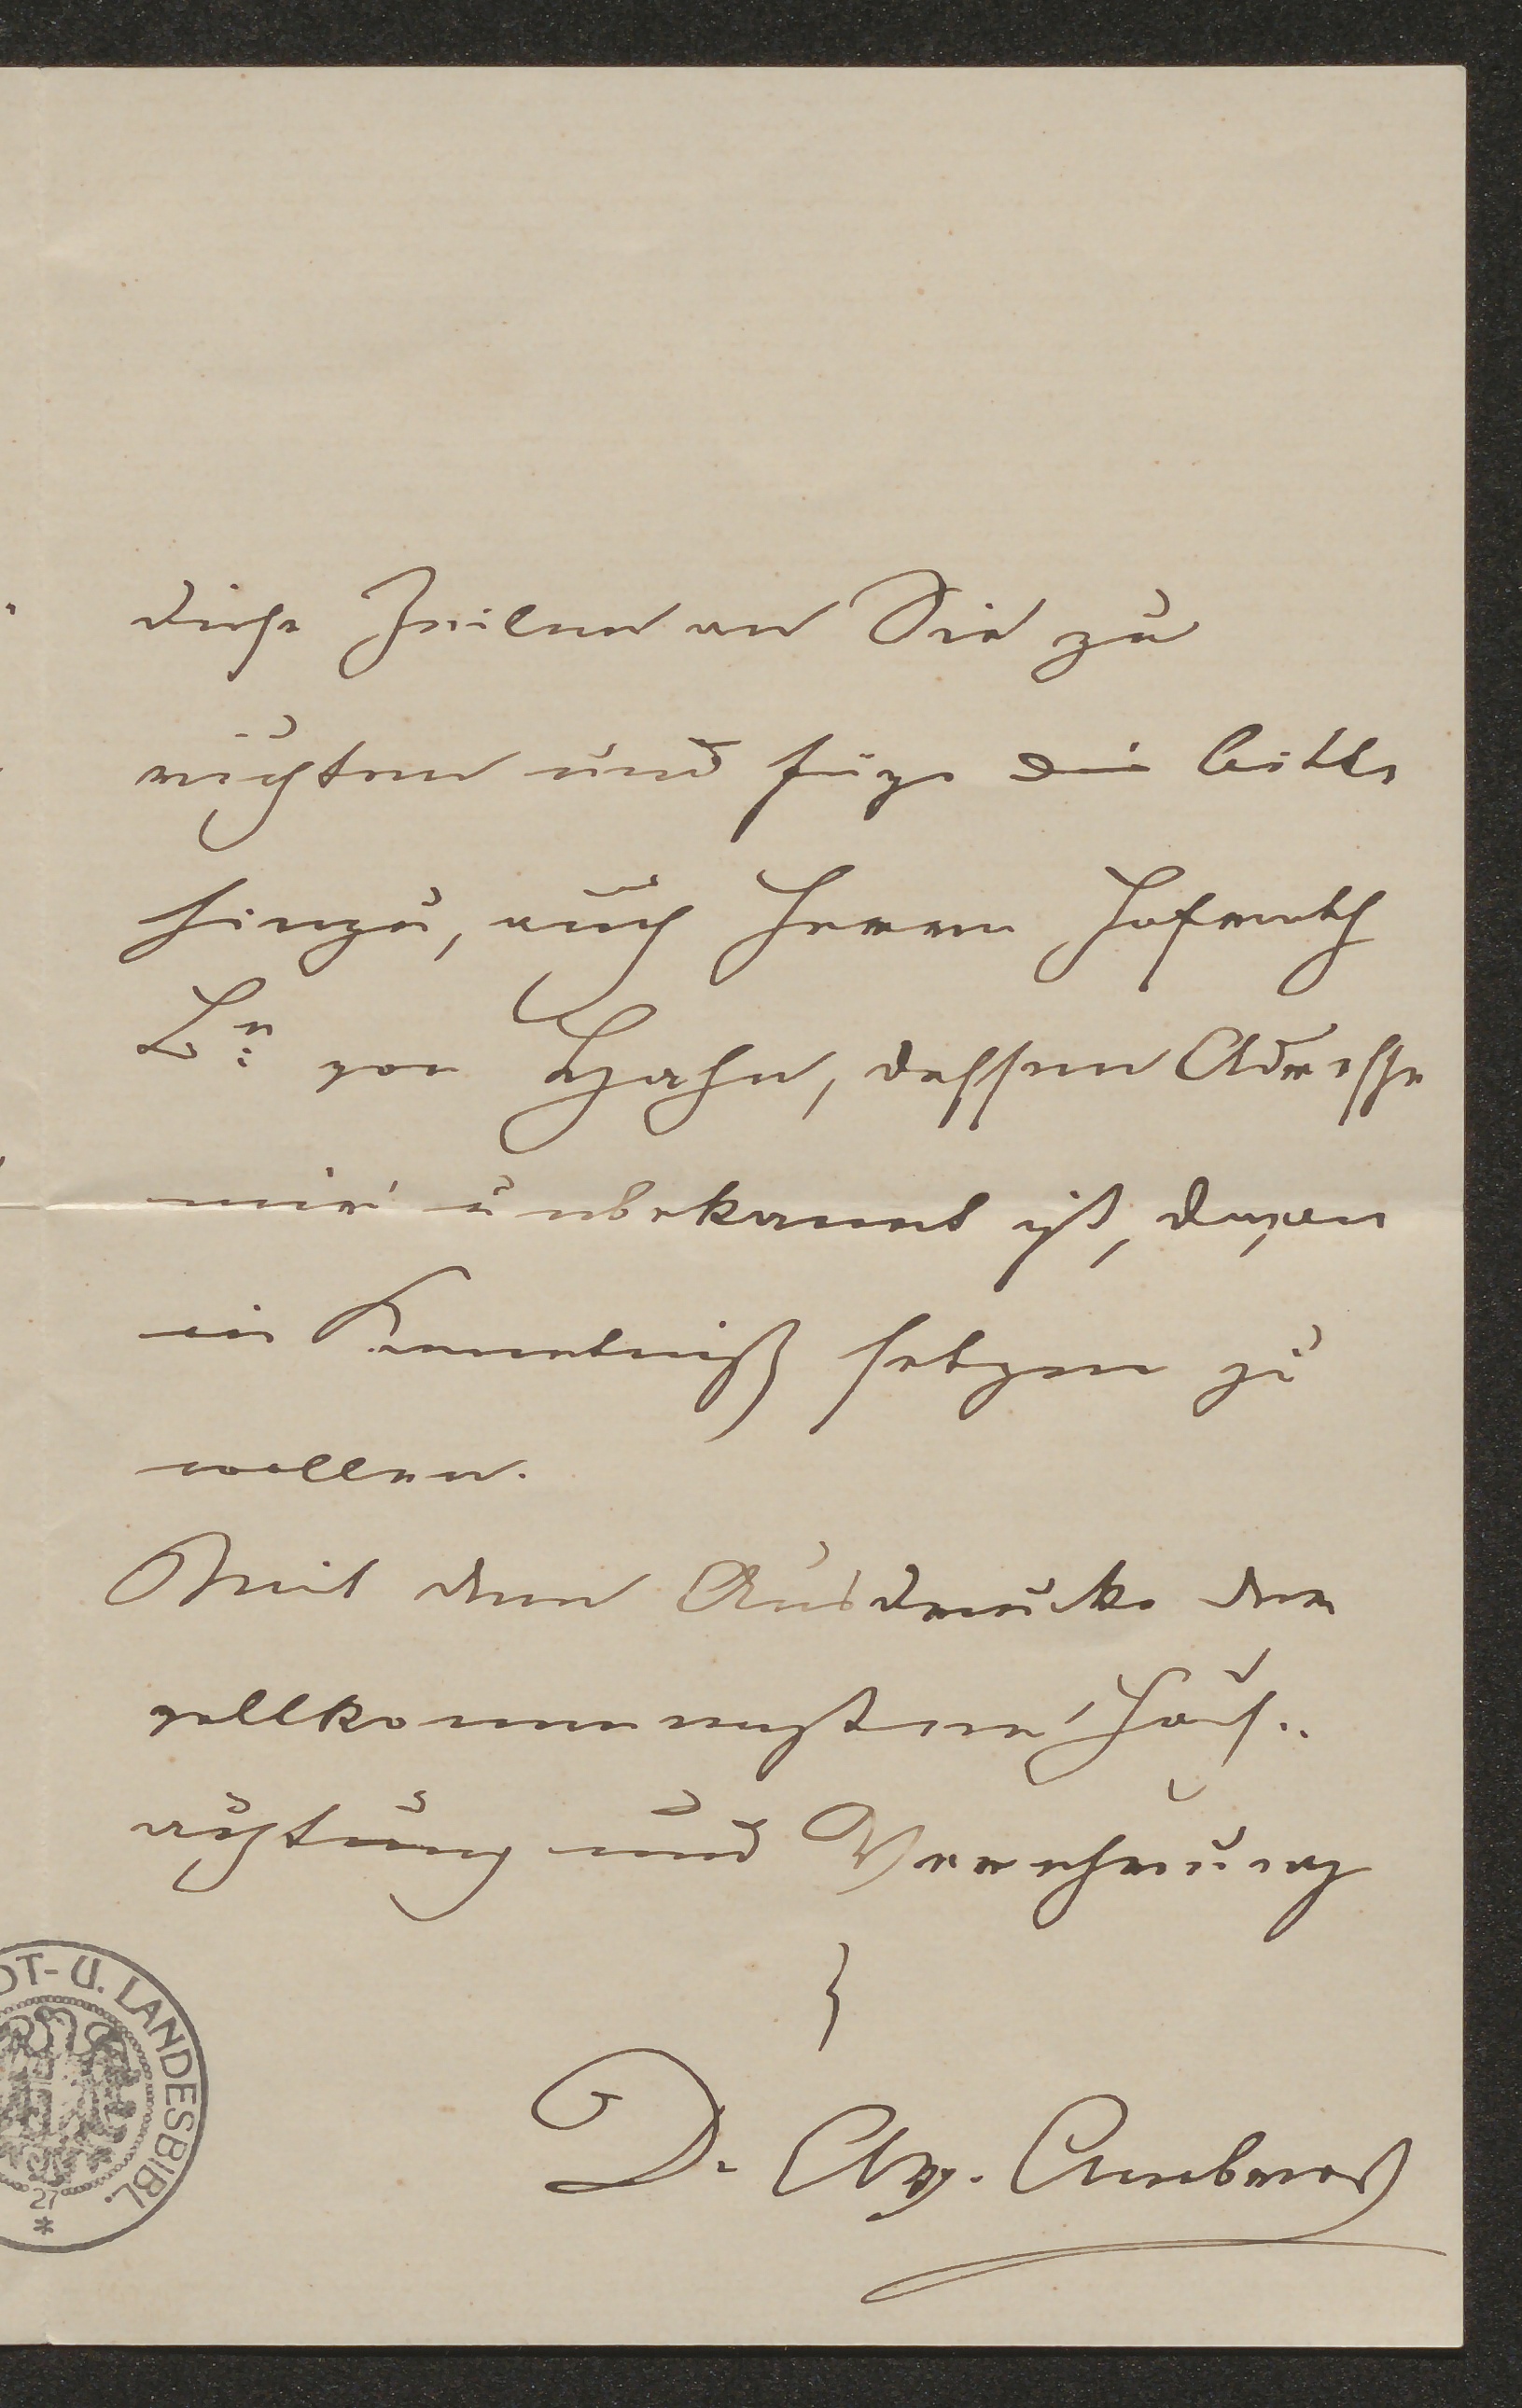 diese Zeilen an Sie zu
richten und füge die bitte
hinzu, auch Herrn Hofrath
von Hahn, dessen Adresse
mir unbekannt ist, davon
in Kenntniß setzen zu
wollen.
Mit dem Ausdrucke der
vollkommensten Hoch-
achtung und Verehrung
D. Aug. Ambros
DT- U. LANDESBIBL.
27
*